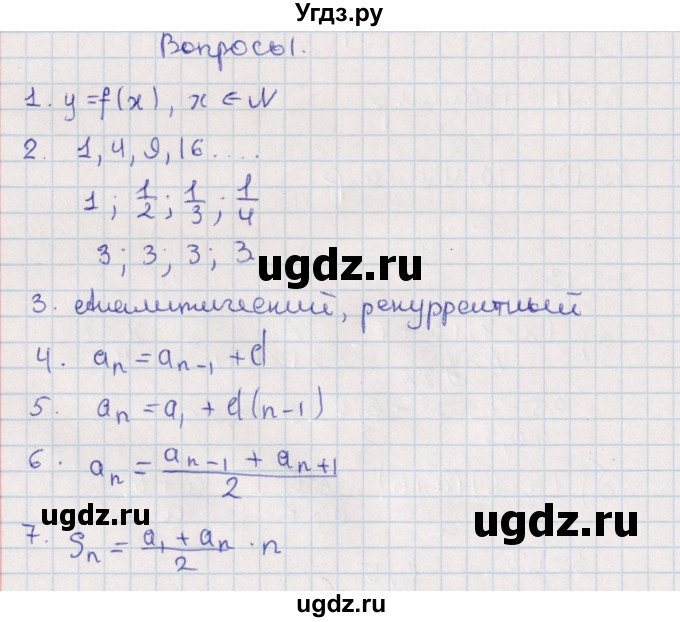 Угдз.ру
Вопросы.
1. y = f(x), x ∈ N
2. 1, 4, 9, 16 ....
1 ; 1/2 ; 1/3 ; 1/4
3 ; 3 ; 3 ; 3
ugdz.ru
3. Аналитический, рекуррентный
4. aₙ = aₙ₋₁ + d
5. aₙ = a₁ + d(n-1)
6. aₙ = (aₙ₋₁ + aₙ₊₁)/2
ugdz.ru ugdz.ru
7. Sₙ = (a₁ + aₙ)/2 · n
ugdz.ru